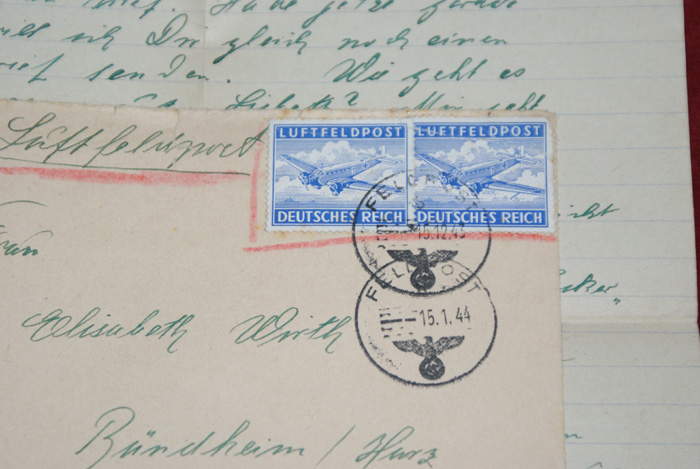 Habe jetzt gerade
will ich Dir gleich noch einen
Brief senden. Wie geht es
Mir geht
Luftfeldpost
LUFTFELDPOST
DEUTSCHES REICH
LUFTFELDPOST
DEUTSCHES REICH
FELDPOST
FELDPOST
15.1.44
Frau
Elisabeth Wirth
Bündheim / Harz